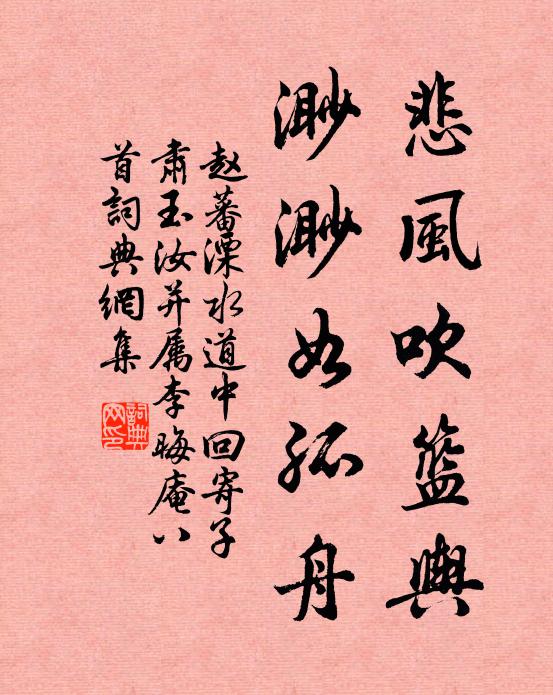 悲風吹籃輿
渺渺如孤舟
赵蕃溧水道中回寄子
肃玉汝并属李晦庵八
首詞典網集
詞典
网印